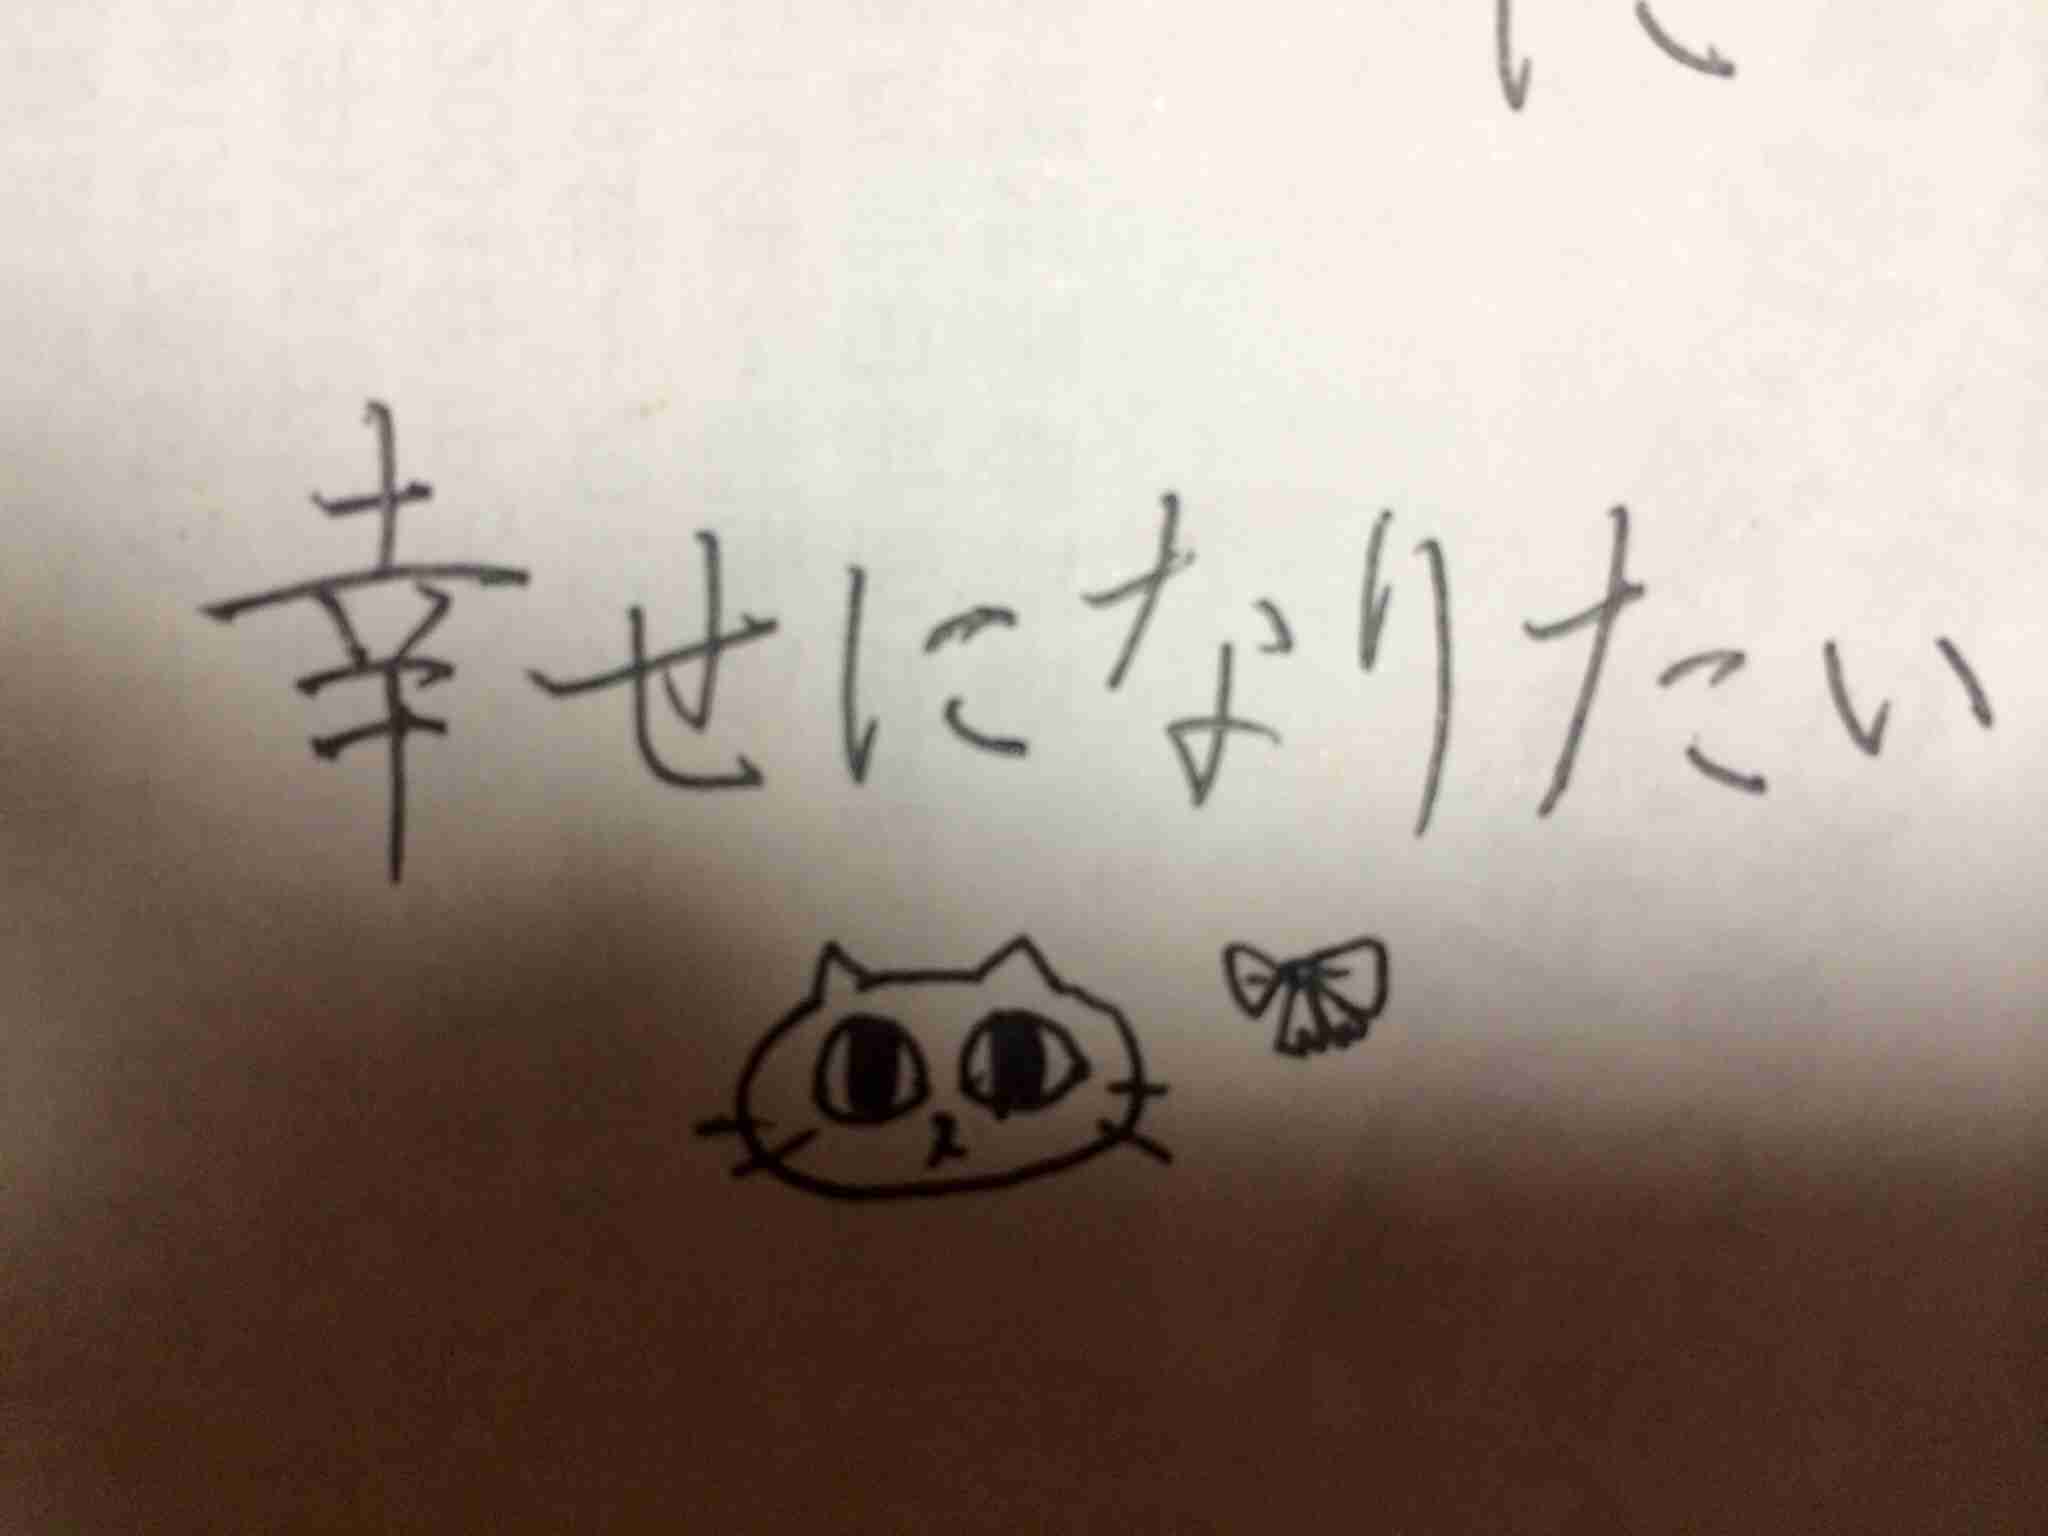 幸せになりたい